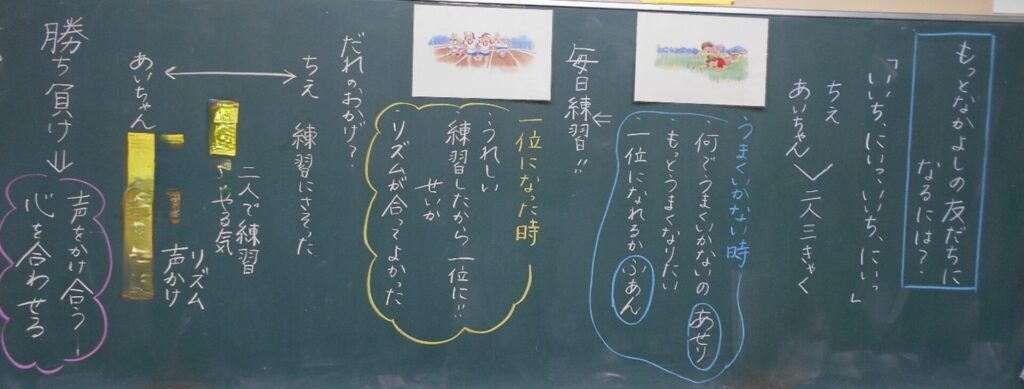 もっとなかよしの友だちに
なるには?
「いいち、にいっ、いいち、にいっ」
ちえ
あいちゃん
二人三きゃく
うまくいかない時
何でうまくいかないの
あせり
もっとうまくなりたい
一位になれるか ふあん
毎日練習!!
一位になった時
うれしい
練習したから一位に!!
せいか
リズムが合ってよかった
だれのおかげ?
ちえ 練習にさそった
二人で練習
やる気
リズム
声かけ
あいちゃん
勝ち負け
声をかけ合う
心を合わせる